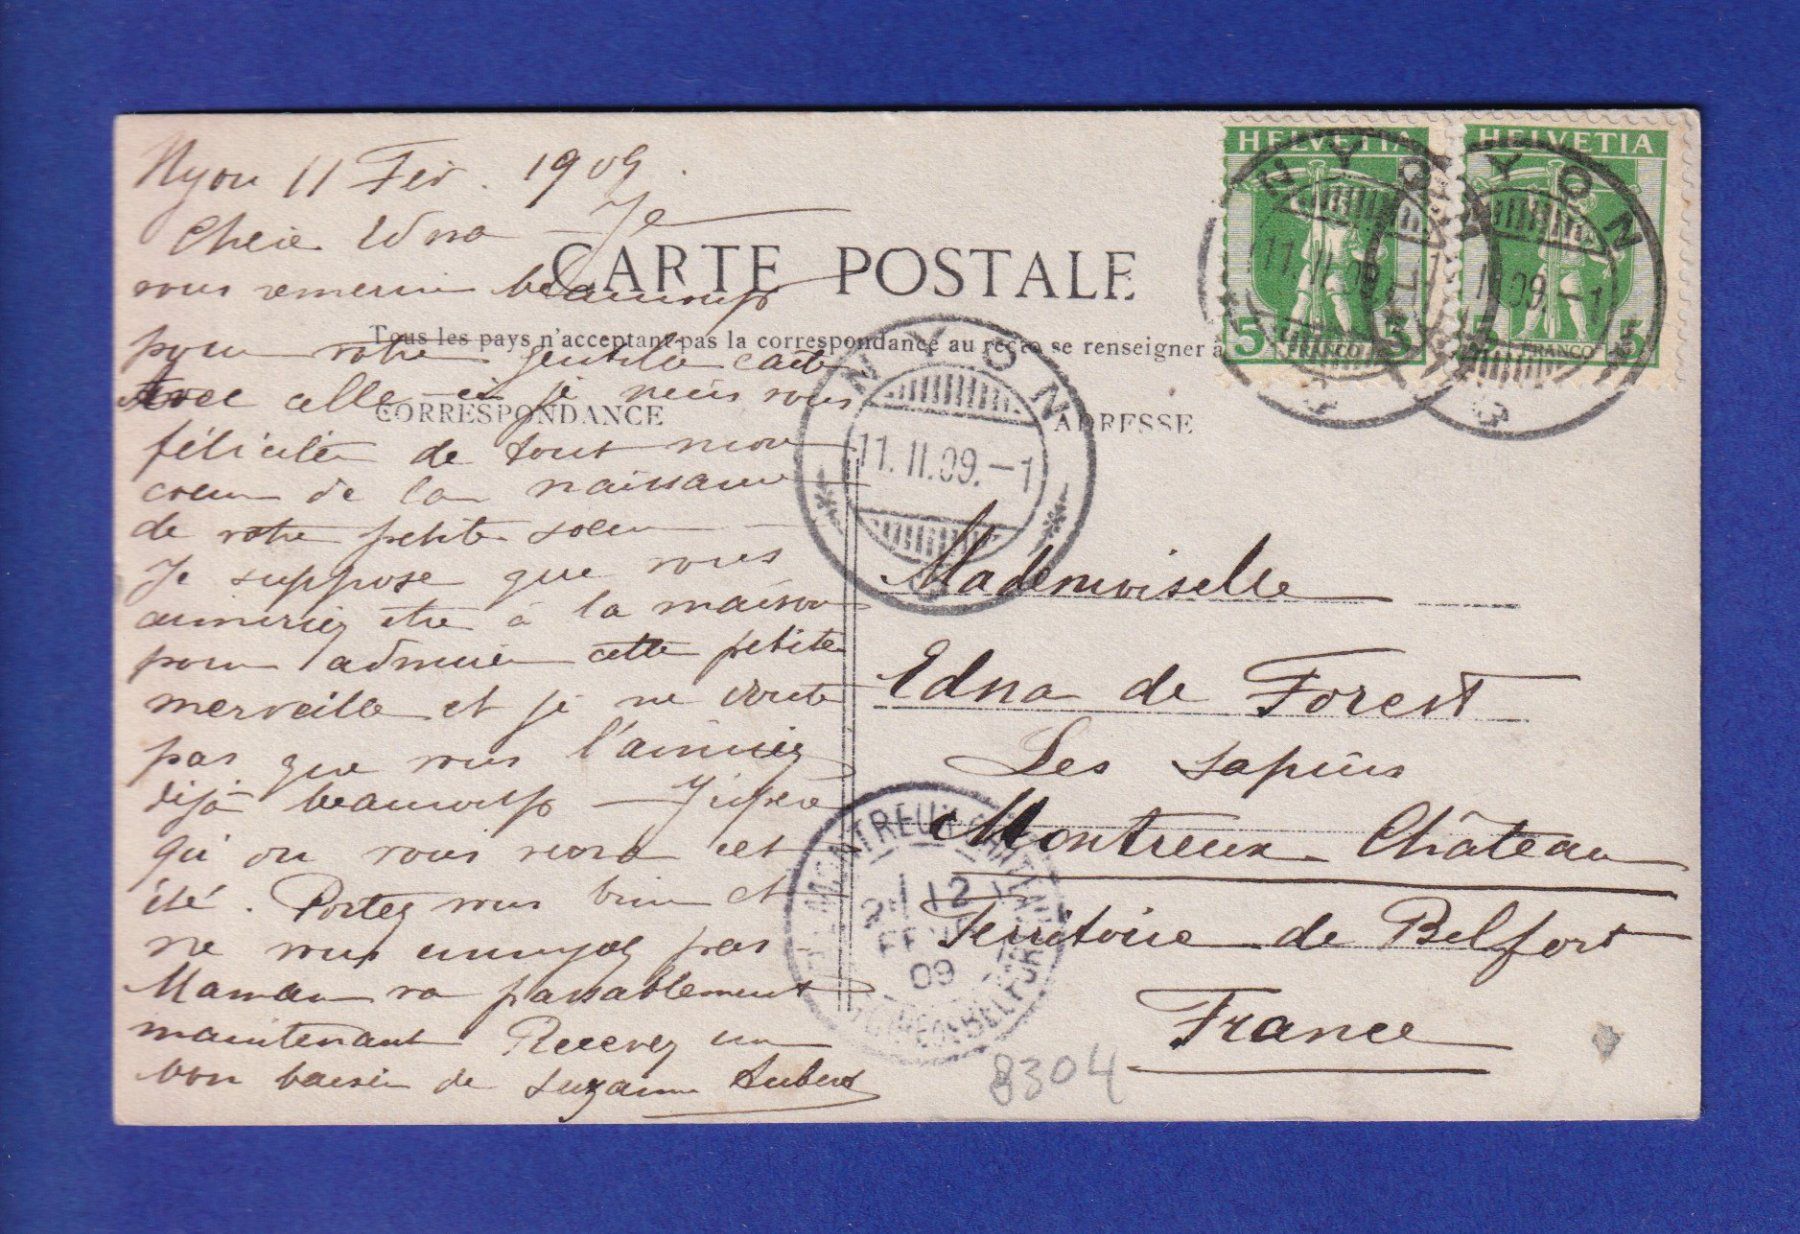 Nyon 11 Fév. 1909.
Chérie Edna – Je
vous remercie beaucoup
pour votre gentille carte
Avec celle-ci je viens vous
féliciter de tout mon
coeur de la naissance
de votre petite soeur –
Je suppose que vous
aimeriez être à la maison
pour admirer cette petite
merveille et je ne doute
pas que vous l'aimiez
déjà beaucoup – J'espère
qu'on vous verra cet
été. Portez vous bien et
ne vous ennuyez pas
Maman va passablement
maintenant Recevez un
bon baiser de Suzanne Aubert
CARTE POSTALE
Tous les pays n'acceptant pas la correspondance au recto se renseigner à
CORRESPONDANCE
ADRESSE
HELVETIA
5 FRANCO 5
HELVETIA
5 FRANCO 5
NYON
11.II.09.–1
NYON
11.II.09.–1
NYON
11.II.09.–1
Mademoiselle
Edna de Forest
Les Sapins
Montreux Château
Territoire de Belfort
France
MONTREUX CHATEAU
12
FEVR
09
BELFORT
8304